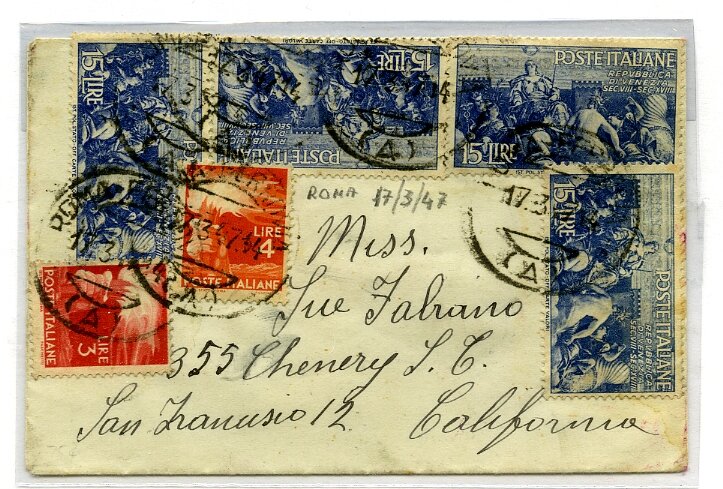 15 LIRE
POSTE ITALIANE
REPVBBLICA
DI VENEZIA
SEC·VIII-SEC·XVIII
15 LIRE
POSTE ITALIANE
REPVBBLICA
DI VENEZIA
SEC·VIII-SEC·XVIII
15 LIRE
POSTE ITALIANE
REPVBBLICA
DI VENEZIA
SEC·VIII-SEC·XVIII
15 LIRE
LIRE
4
POSTE ITALIANE
LIRE
3
POSTE ITALIANE
ROMA
17.3
(A)
ROMA 17/3/47
Miss.
Sue Fabiano
355 Chenery S.T.
San Francisio 12 California